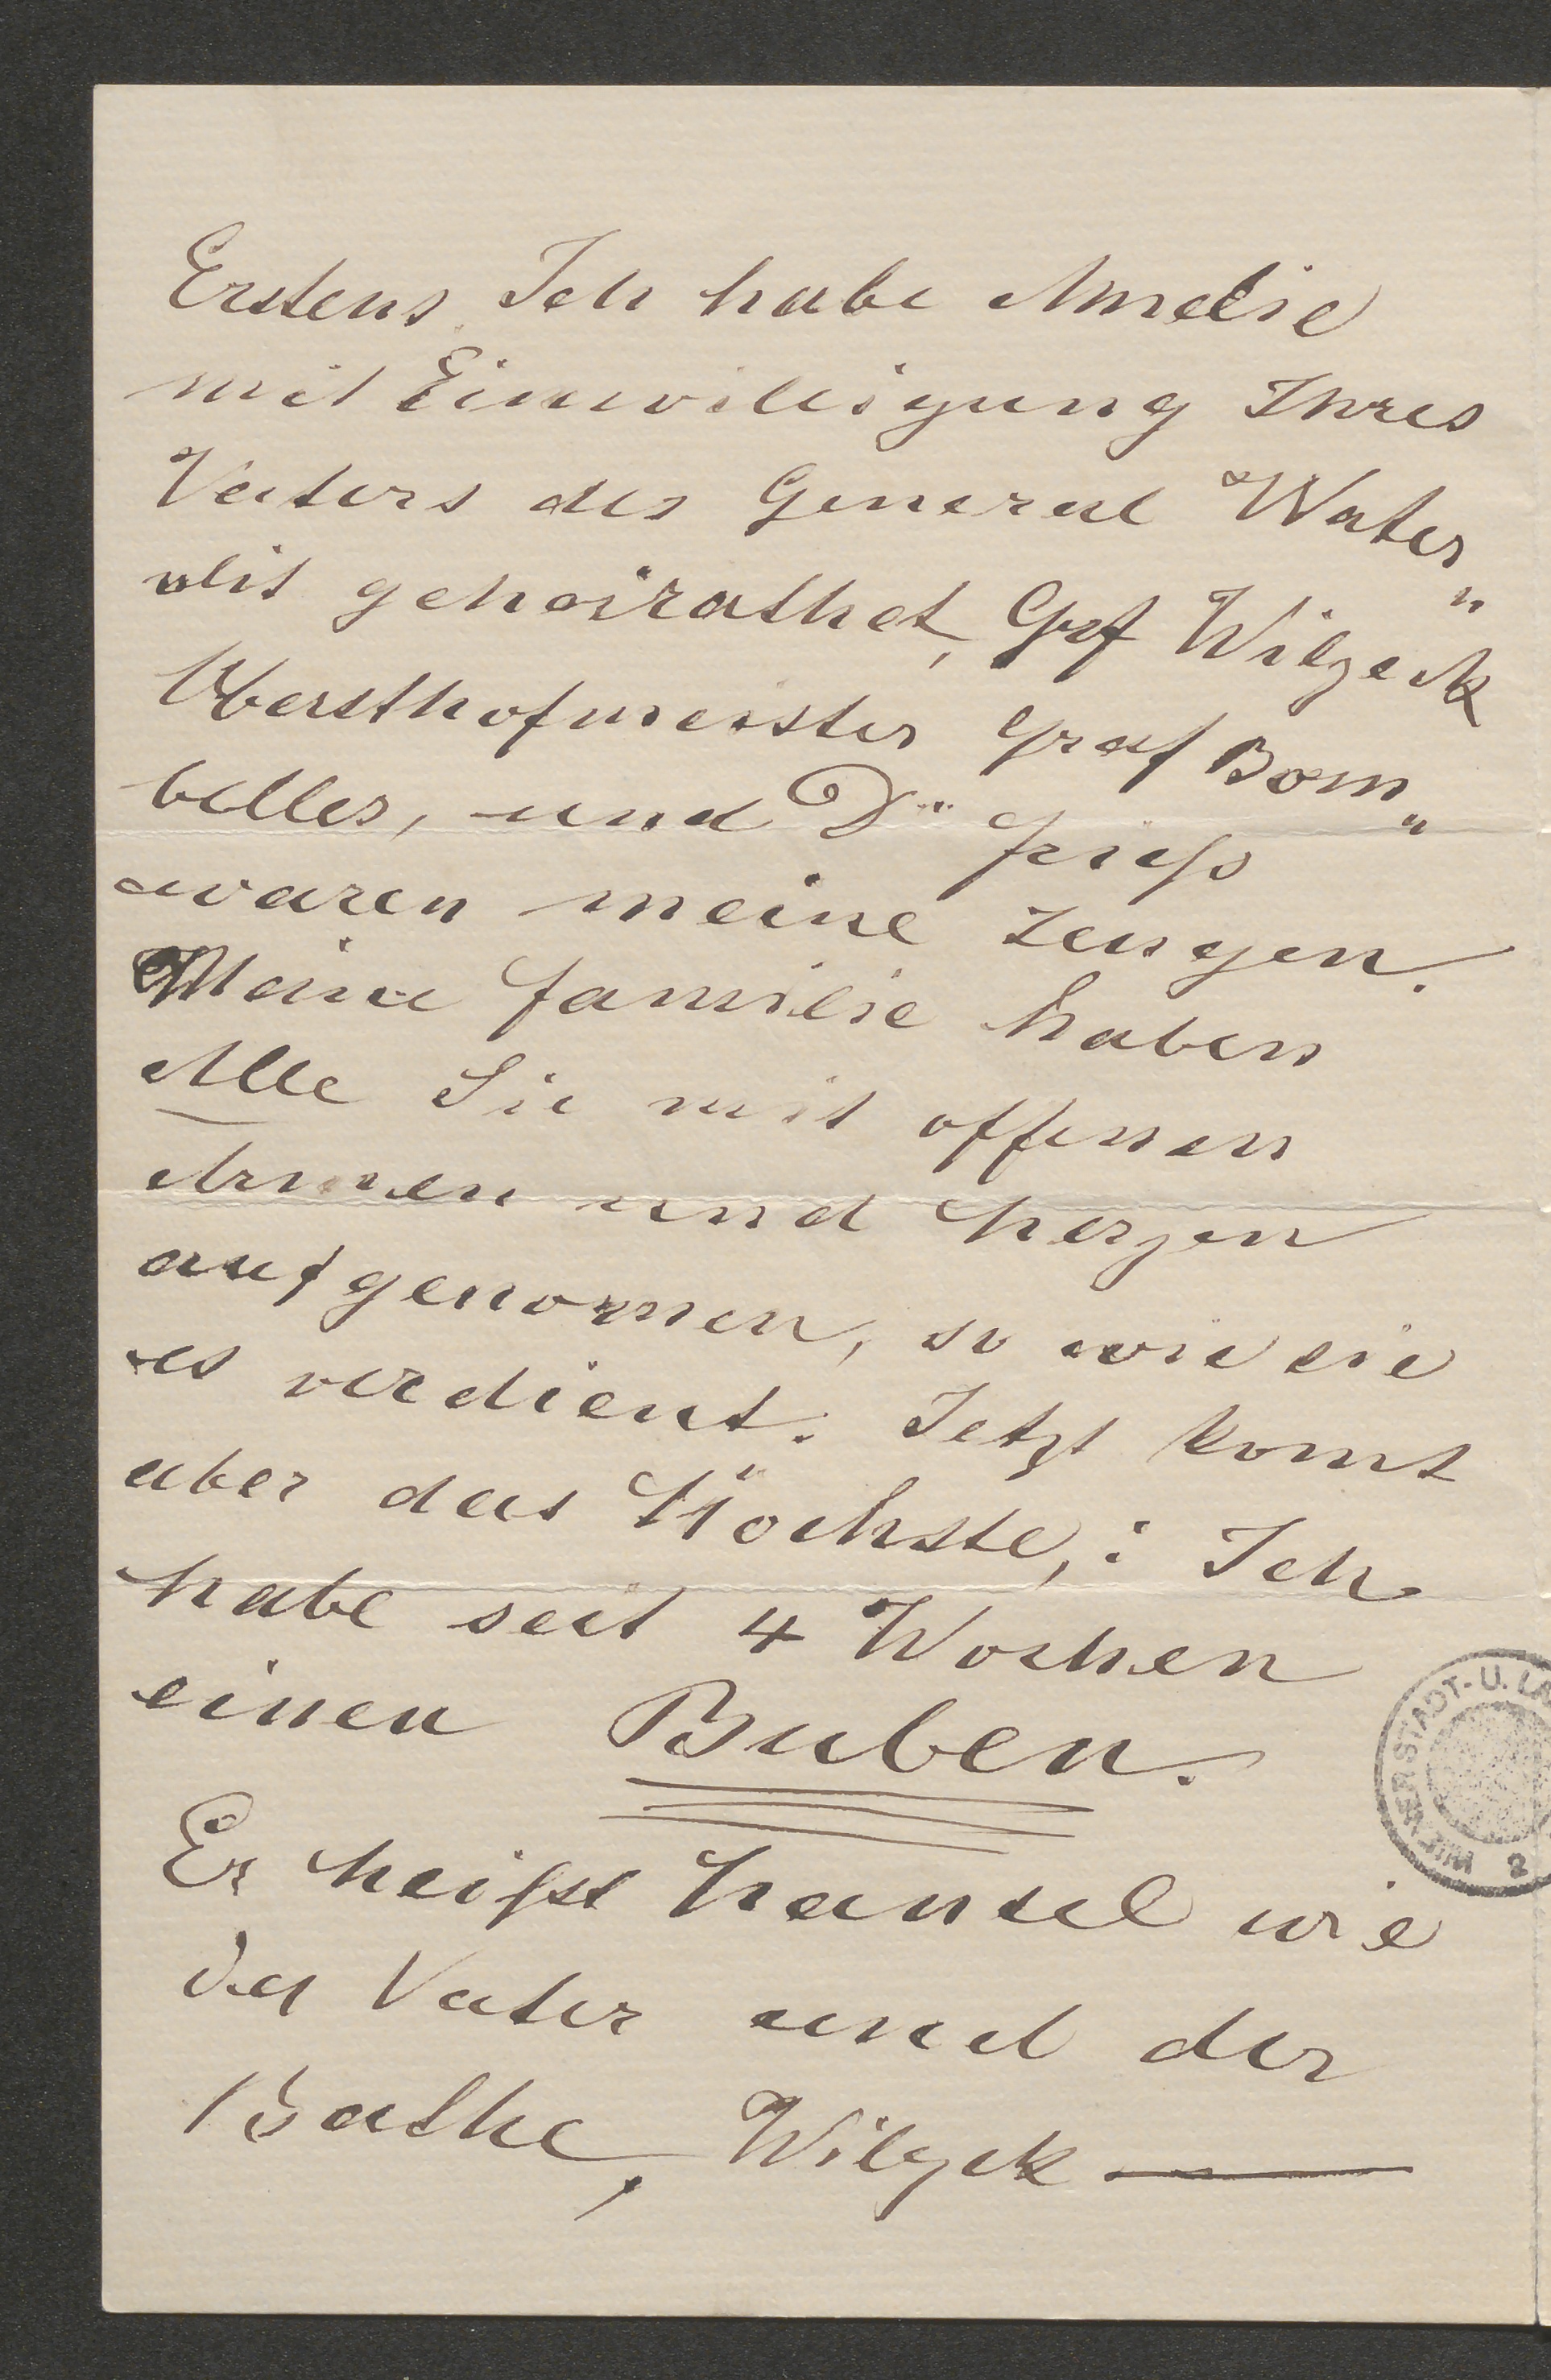 Erstens Ich habe Amelie
mit Einwilligung Ihres
Vaters des General Water„
olit geheirathet, Graf Wilzeck
Obersthofmeister Graf Bom„
belles, und Dr
waren meine Zeugen.
Meine Familie haben
Alle Sie mit offenen
Armen und Herzen
aufgenomen, so wie sie
es verdient. Jetzt komt
aber das Höchste,: Ich
habe seit 4 Wochen
einen Buben.
Er heißt Hansel wie
der Vater und der
Bathe, Wilzek —
WIENER STADT- U. LA
2